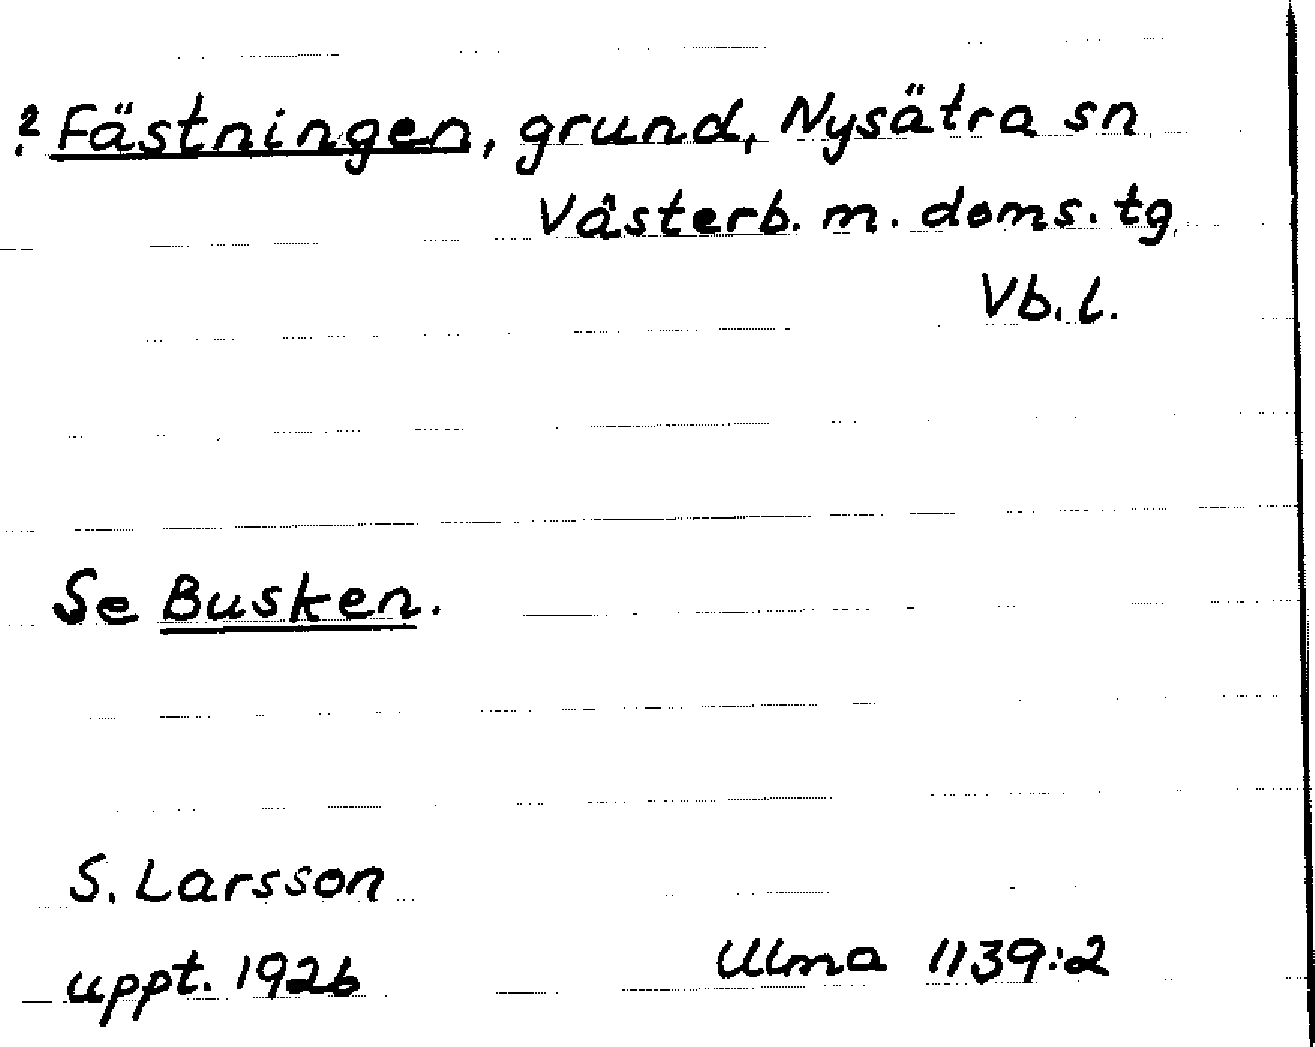 ? Fästningen, grund, Nysätra sn
Västerb. m. doms. tg
Vb. l.
Se Busken.
S. Larsson
uppt. 1926
Ulma 1139:2